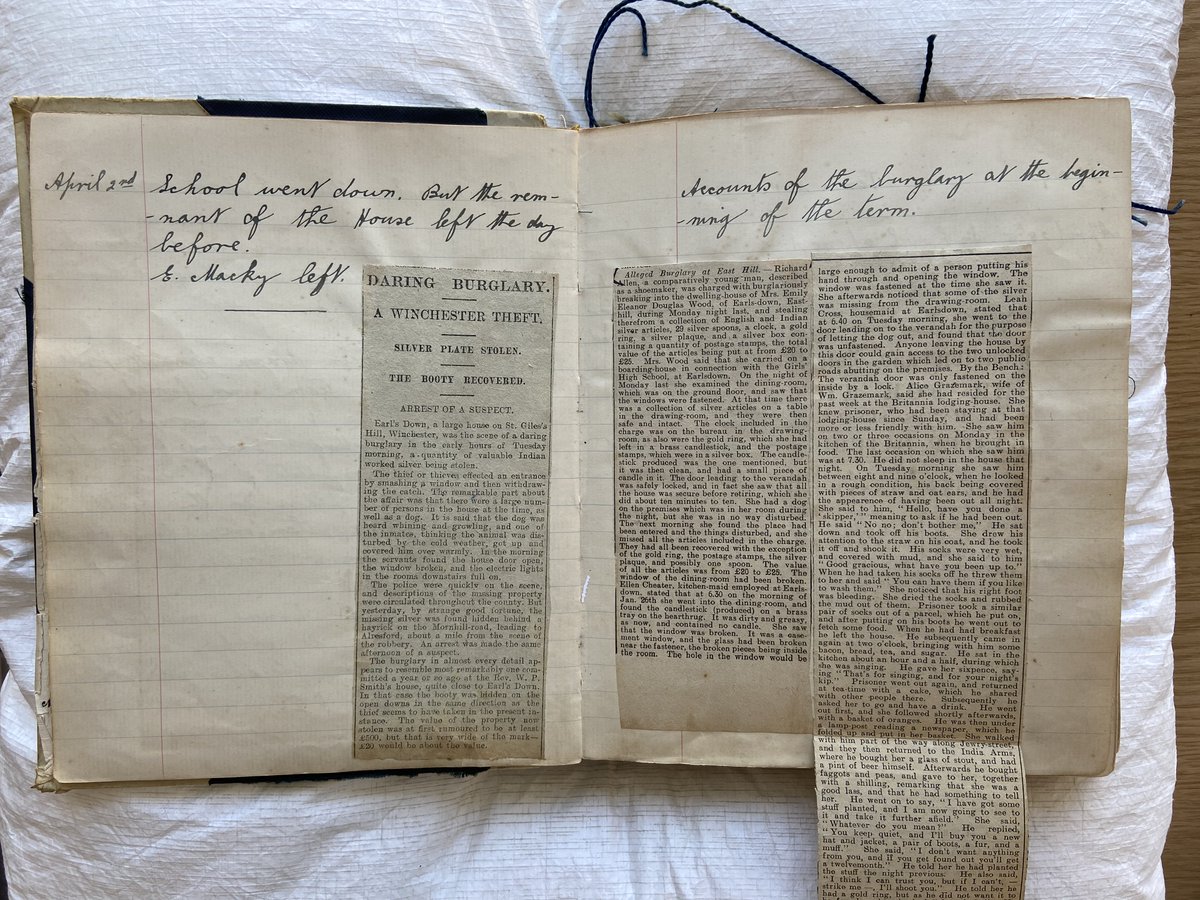 April 2nd School went down. But the rem-
-nant of the House left the day
before.
E. Macky left.
DARING BURGLARY.
A WINCHESTER THEFT.
SILVER PLATE STOLEN.
THE BOOTY RECOVERED.
ARREST OF A SUSPECT.
Earl's Down, a large house on St. Giles's
Hill, Winchester, was the scene of a daring
burglary in the early hours of Tuesday
morning, a quantity of valuable Indian
worked silver being stolen.
The thief or thieves effected an entrance
by smashing a window and then withdraw-
ing the catch. The remarkable part about
the affair was that there were a large num-
ber of persons in the house at the time, as
well as a dog. It is said that the dog was
heard whining and growling, and one of
the inmates, thinking the animal was dis-
turbed by the cold weather, got up and
covered him over warmly. In the morning
the servants found the house door open,
the window broken, and the electric lights
in the rooms downstairs full on.
The police were quickly on the scene,
and descriptions of the missing property
were circulated throughout the county. But
yesterday, by strange good fortune, the
missing silver was found hidden behind a
hayrick on the Mornhill-road, leading to
Alresford, about a mile from the scene of
the robbery. An arrest was made the same
afternoon of a suspect.
The burglary in almost every detail ap-
pears to resemble most remarkably one com-
mitted a year or so ago at the Rev. W. P.
Smith's house, quite close to Earl's Down.
In that case the booty was hidden on the
open downs in the same direction as the
thief seems to have taken in the present in-
stance. The value of the property now
stolen was at first rumoured to be at least
£500, but that is very wide of the mark—
£20 would be about the value.
Accounts of the burglary at the begin-
-ning of the term.
Alleged Burglary at East Hill.—Richard
Allen, a comparatively young man, described
as a shoemaker, was charged with burglariously
breaking into the dwelling-house of Mrs. Emily
Eleanor Douglas Wood, of Earls-down, East-
hill, during Monday night last, and stealing
therefrom a collection of English and Indian
silver articles, 29 silver spoons, a clock, a gold
ring, a silver plaque, and a silver box con-
taining a quantity of postage stamps, the total
value of the articles being put at from £20 to
£25. Mrs. Wood said that she carried on a
boarding-house in connection with the Girls'
High School, at Earlsdown. On the night of
Monday last she examined the dining-room,
which was on the ground floor, and saw that
the windows were fastened. At that time there
was a collection of silver articles on a table
in the drawing-room, and they were then
safe and intact. The clock included in the
charge was on the bureau in the drawing-
room, as also were the gold ring, which she had
left in a brass candlestick, and the postage
stamps, which were in a silver box. The candle-
stick produced was the one mentioned, but
it was then clean, and had a small piece of
candle in it. The door leading to the verandah
was safely locked, and in fact she saw that all
the house was secure before retiring, which she
did about ten minutes to ten. She had a dog
on the premises which was in her room during
the night, but she was in no way disturbed.
The next morning she found the place had
been entered and the things disturbed, and she
missed all the articles included in the charge.
They had all been recovered with the exception
of the gold ring, the postage stamps, the silver
plaque, and possibly one spoon. The value
of all the articles was from £20 to £25. The
window of the dining-room had been broken.
Ellen Cheater, kitchen-maid employed at Earls-
down, stated that at 6.30 on the morning of
Jan. 26th she went into the dining-room, and
found the candlestick (produced) on a brass
tray on the hearthrug. It was dirty and greasy,
as now, and contained no candle. She saw
that the window was broken. It was a case-
ment window, and the glass had been broken
near the fastener, the broken pieces being inside
the room. The hole in the window would be
large enough to admit of a person putting his
hand through and opening the window. The
window was fastened at the time she saw it.
She afterwards noticed that some of the silver
was missing from the drawing-room. Leah
Cross, housemaid at Earlsdown, stated that
at 6.40 on Tuesday morning, she went to the
door leading on to the verandah for the purpose
of letting the dog out, and found that the door
was unfastened. Anyone leaving the house by
this door could gain access to the two unlocked
doors in the garden which led on to two public
roads abutting on the premises. By the Bench:
The verandah door was only fastened on the
inside by a lock. Alice Grazemark, wife of
Wm. Grazemark, said she had resided for the
past week at the Britannia lodging-house. She
knew prisoner, who had been staying at that
lodging-house since Sunday, and had been
more or less friendly with him. She saw him
on two or three occasions on Monday in the
kitchen of the Britannia, when he brought in
food. The last occasion on which she saw him
was at 7.30. He did not sleep in the house that
night. On Tuesday morning she saw him
between eight and nine o'clock, when he looked
in a rough condition, his back being covered
with pieces of straw and oat ears, and he had
the appearence of having been out all night.
She said to him, "Hello, have you done a
'skipper,'" meaning to ask if he had been out.
He said "No no; don't bother me," He sat
down and took off his boots. She drew his
attention to the straw on his coat, and he took
it off and shook it. His socks were very wet,
and covered with mud, and she said to him
"Good gracious, what have you been up to."
When he had taken his socks off he threw them
to her and said "You can have them if you like
to wash them." She noticed that his right foot
was bleeding. She dried the socks and rubbed
the mud out of them. Prisoner took a similar
pair of socks out of a parcel, which he put on,
and after putting on his boots he went out to
fetch some food. When he had had breakfast
he left the house. He subsequently came in
again at two o'clock, bringing with him some
bacon, bread, tea, and sugar. He sat in the
kitchen about an hour and a half, during which
she was singing. He gave her sixpence, say-
ing "That's for singing, and for your night's
kip." Prisoner went out again, and returned
at tea-time with a cake, which he shared
with other people there. Subsequently he
asked her to go and have a drink. He went
out first, and she followed shortly afterwards,
with a basket of oranges. He was then under
a lamp-post reading a newspaper, which he
folded up and put in her basket. She walked
with him part of the way along Jewry-street,
and they then returned to the India Arms,
where he bought her a glass of stout, and had
a pint of beer himself. Afterwards he bought
faggots and peas, and gave to her, together
with a shilling, remarking that she was a
good lass, and that he had something to tell
her. He went on to say, "I have got some
stuff planted, and I am now going to see to
it and take it further afield." She said,
"Whatever do you mean?" He replied,
"You keep quiet, and I'll buy you a new
hat and jacket, a pair of boots, a fur, and a
muff." She said, "I don't want anything
from you, and if you get found out you'll get
a twelvemonth." He told her he had planted
the stuff the night previous. He also said,
"I think I can trust you, but if I can't, —
strike me —, I'll shoot you." He told her he
had a gold ring, but as he did not want it to